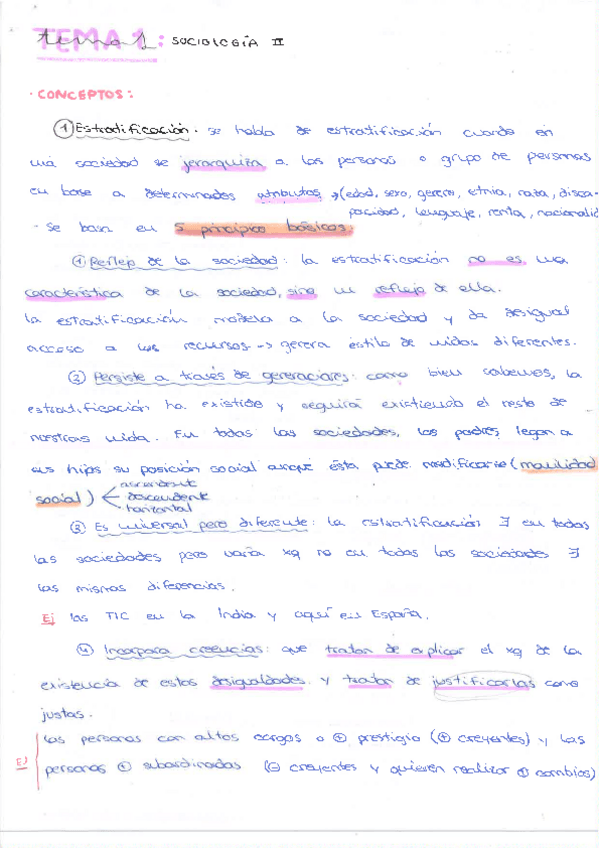 TEMA 1: SOCIOLOGÍA II
· CONCEPTOS:
① Estratificación · se habla de estratificación cuando en
una sociedad se jerarquiza a las personas o grupo de personas
en base a determinados atributos → (edad, sexo, género, etnia, raza, disca-
pacidad, lenguaje, renta, nacionalid
- Se basa en 5 principios básicos:
① Reflejo de la sociedad: la estratificación no es una
característica de la sociedad, sino un reflejo de ella.
la estratificación modela a la sociedad y da desigual
acceso a los recursos → genera estilo de vidas diferentes.
② Persiste a través de generaciones: como bien sabemos, la
estratificación ha existido y seguirá existiendo el resto de
nuestras vida. En todas las sociedades, los padres legan a
sus hijos su posición social aunque ésta puede modificarse (movilidad
social) ascendente
descendente
horizontal
③ Es universal pero diferente: la estratificación ∃ en todas
las sociedades pero varía xq no en todas las sociedades ∃
las mismas diferencias.
Ej las TIC en la India y aquí en España.
④ Incorpora creencias: que tratan de explicar el xq de la
existencia de estas desigualdades y tratan de justificarlas como
justas.
las personas con altos cargos o ⊕ prestigio (⊕ creyentes) y las
Ej personas subordinadas (⊖ creyentes y quieren realizar ⊕ cambios)